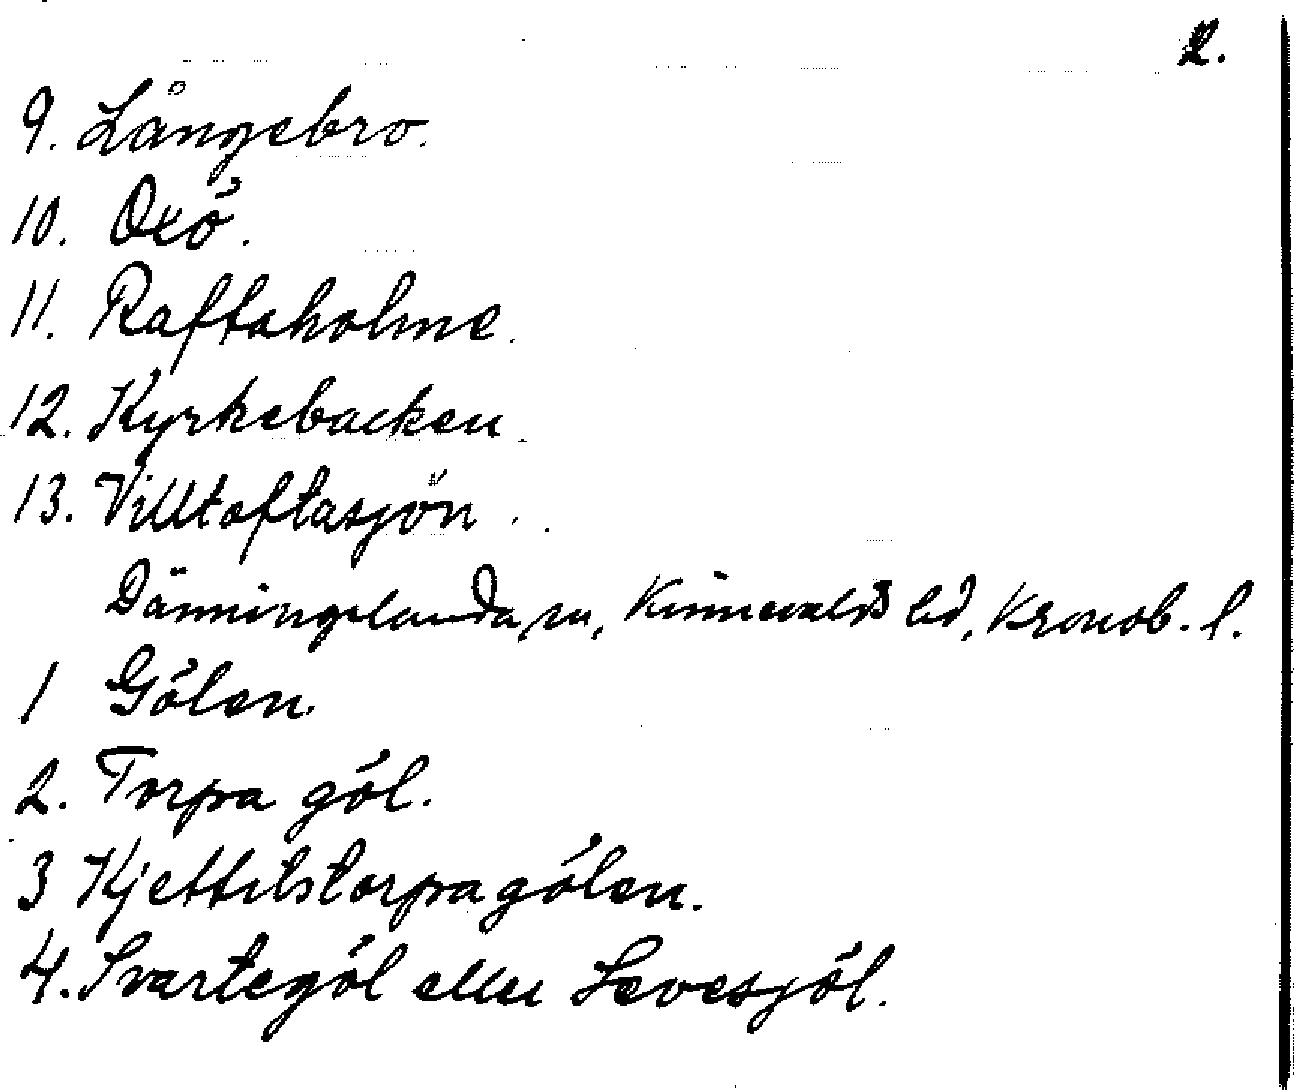 2.
9. Långebro.
10. Oxö.
11. Raftaholme.
12. Kyrkebacken.
13. Villtoftasjön.
Dänningelanda sn, Kinnevalds hd, Kronob. l.
1 Gölen.
2. Torpa göl.
3 Kjettilstorpagölen.
4. Svartegöl eller Levesjöl.